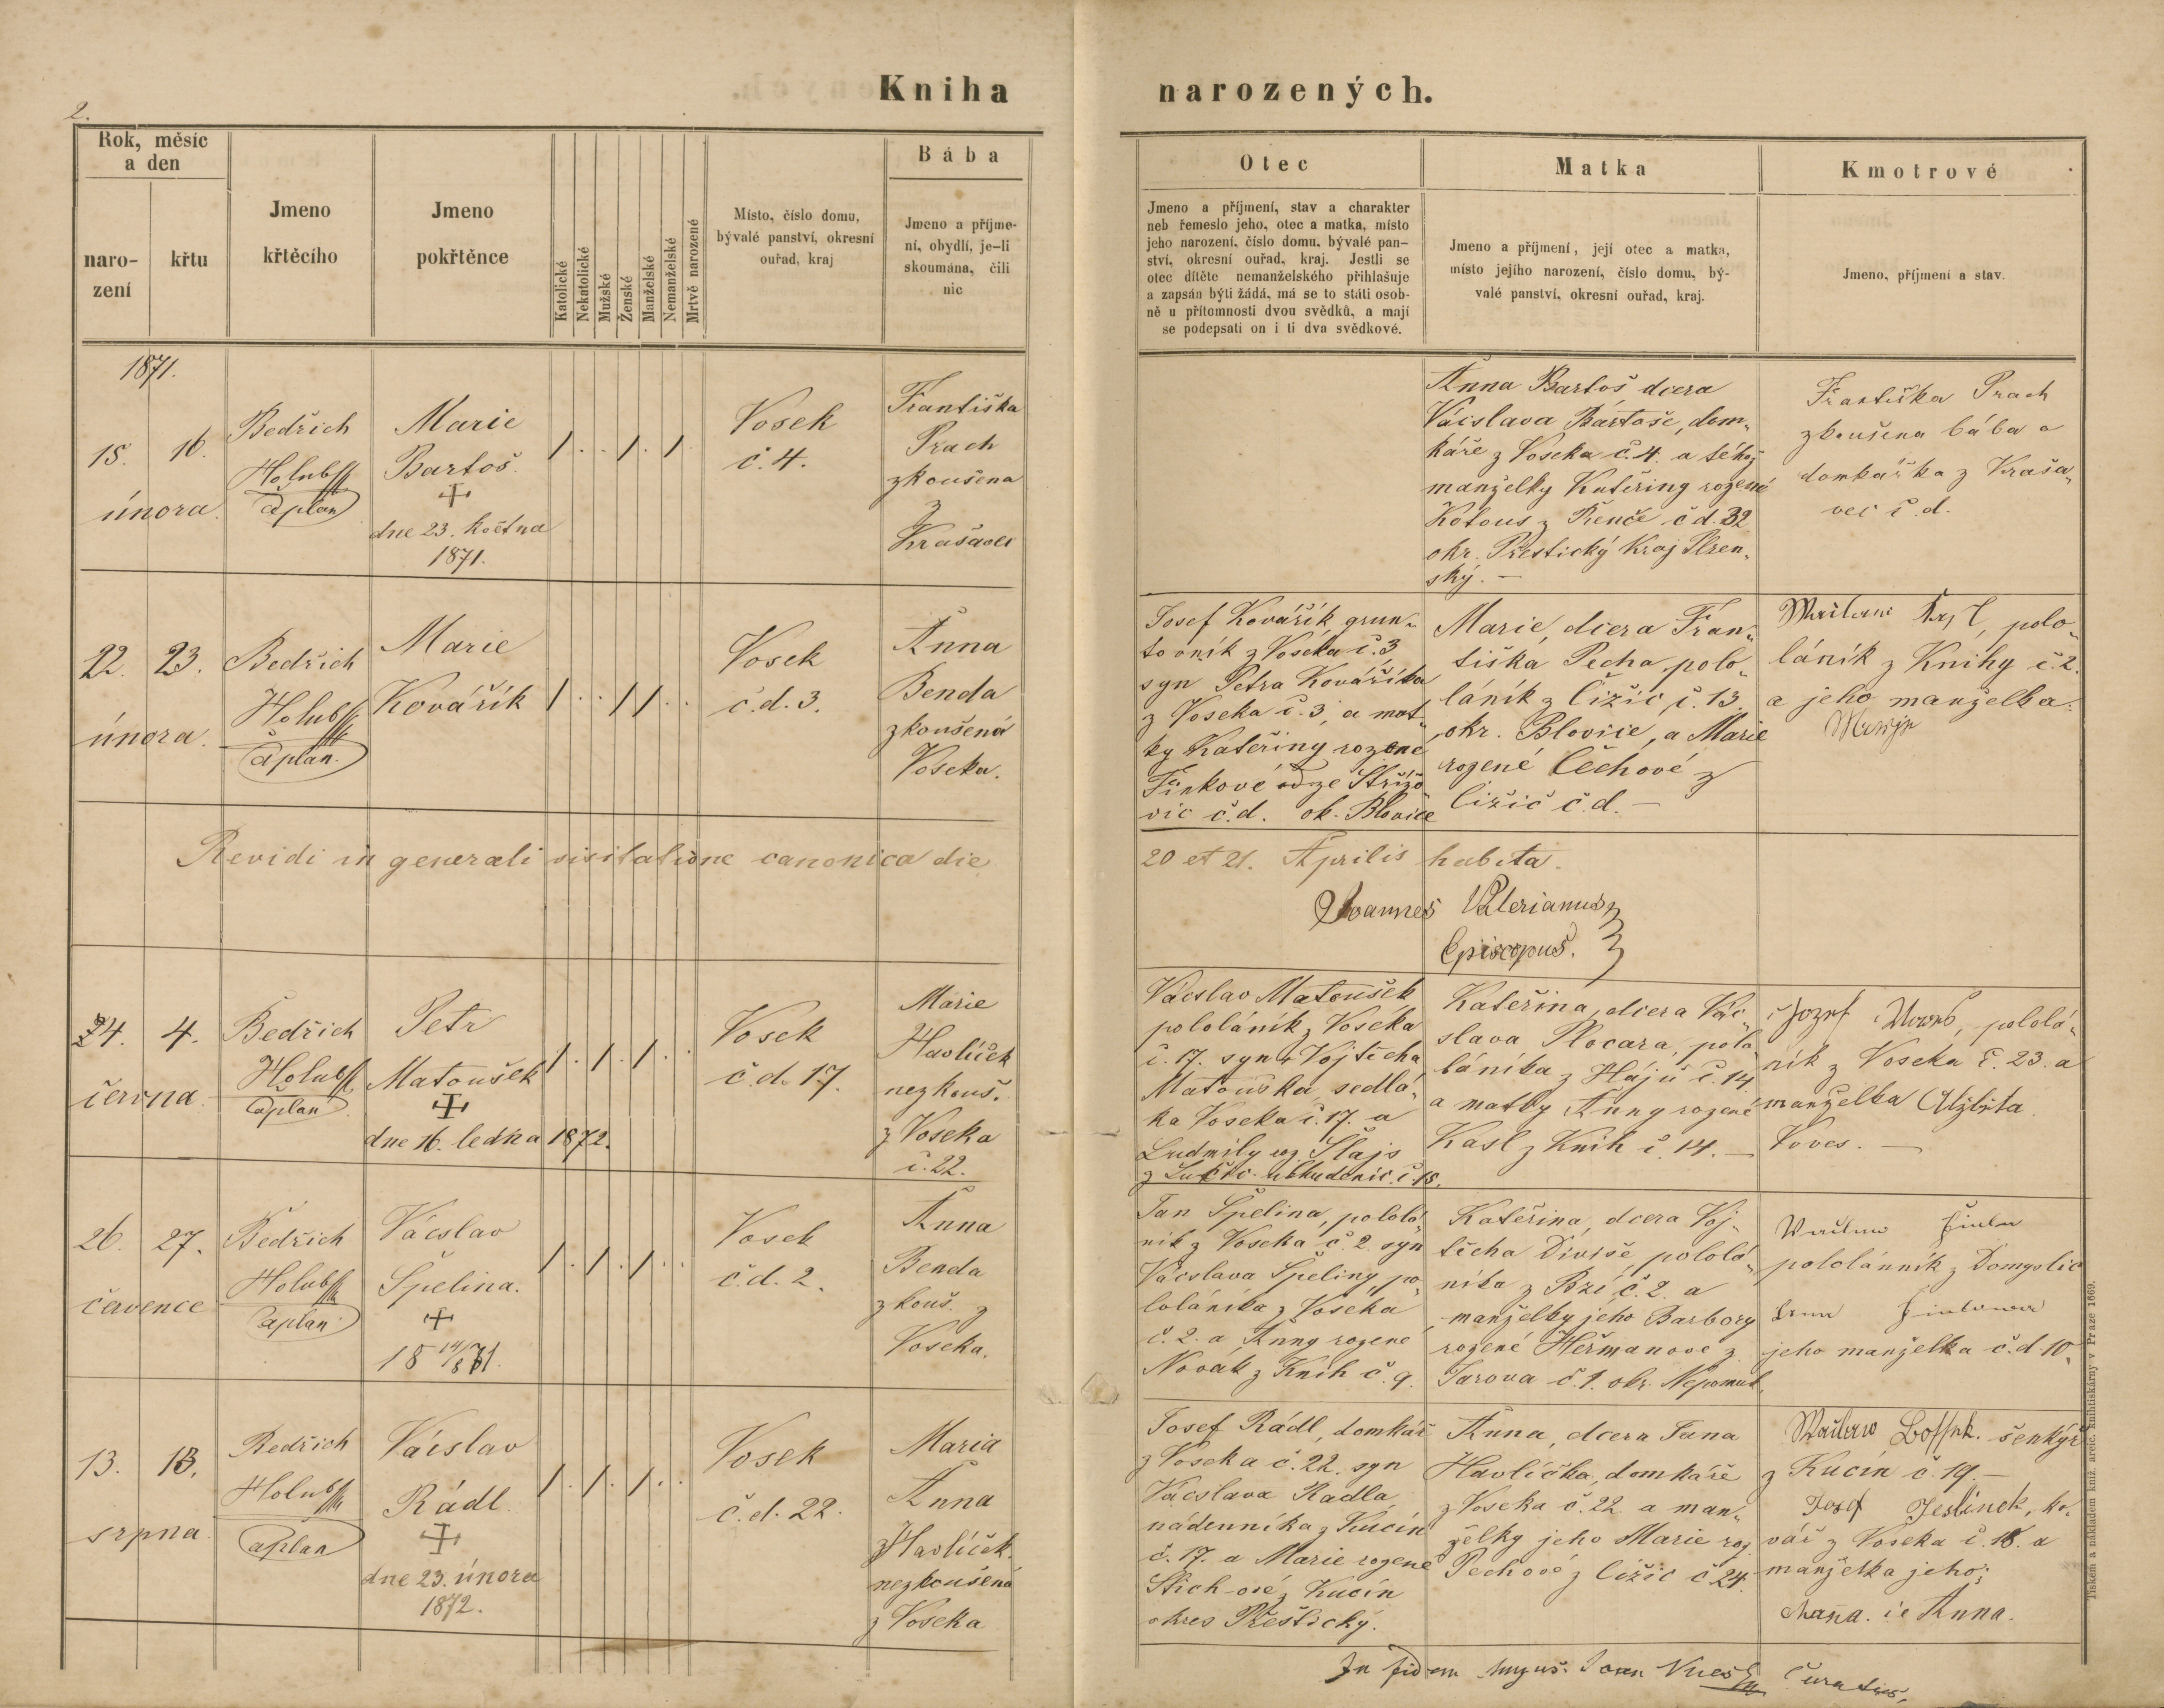 2.
Kniha narozených.
Rok, měsíc
a den
naro-
zení
křtu
Jmeno
křtěcího
Jmeno
pokřtěnce
Katolické
Nekatolické
Mužské
Ženské
Manželské
Nemanželské
Mrtvě narozené
Místo, číslo domu,
bývalé panství, okresní
ouřad, kraj
Bába
Jmeno a příjme-
ní, obydlí, je-li
skoumána, čili
nic
Otec
Jmeno a příjmení, stav a charakter
neb řemeslo jeho, otec a matka, místo
jeho narození, číslo domu, bývalé pan-
ství, okresní ouřad, kraj. Jestli se
otec dítěte nemanželského přihlašuje
a zapsán býti žádá, má se to státi osob-
ně u přítomnosti dvou svědků, a mají
se podepsati on i ti dva svědkové.
Matka
Jmeno a příjmení, její otec a matka,
místo jejího narození, číslo domu, bý-
valé panství, okresní ouřad, kraj.
Kmotrové
Jmeno, příjmení a stav.
1871.
15. 16.
února.
Bedřich
Holub
Caplan
Marie
Bartoš.
dne 23. května
1871.
Vosek
č. 4.
Františka
Prach
zkoušena
z
Krašavec
Anna Bartoš dcera
Váislava Bartoše, dom-
káře z Voseka č. 4. a téhož
manželky Kateřiny rozené
Kotous z Řenče č d. 32
okr. Přestický Kraj Plzen-
ský. –
Františka Prach
zkoušena bába a
domkařka z Kraša-
vec č. d.
22. 23.
února.
Bedřich
Holub
Caplan.
Marie
Kovářík
Vosek
č. d. 3.
Anna
Benda
zkoušená
Voseka.
Josef Kovářík, grun-
tovník z Voseka č. 3
syn Petra Kováříka
z Voseka č. 3, a mat-
ky Kateřiny rozené
Finkové ze Střížo
vic č. d. ok. Blovice
Marie, dcera Fran-
tiška Pecha, polo-
láník z Čižic, č. 13.
okr. Blovice, a Marie
rozené Čechové z
Čižic č. d. –
polo-
láník z Knihy č. 2.
a jeho manželka
Revidi in generali visitatione canonica die 20 et 21. Aprilis habita.
Joannes Valerianus
Episcopus.
24. 4.
června.
Bedřich
Holub
Caplan
Petr
Matoušek
dne 16. ledna 1872.
Vosek
č. d. 17.
Marie
Havlíček
nezkouš.
z Voseka
č. 22.
Vácslav Matoušek
pololáník z Voseka
č. 17. syn Vojtěcha
Matouška sedlá-
ka Voseka č. 17. a
Ludmily roz. Šlajs
Kateřina, dcera Vác-
slava Plocara, polo-
láníka z Hájů č. 14
a matky Anny rozené
Kasl z Knih č. 14. –
pololá-
ník z Voseka č. 23. a
manželka Alžběta
Voves. –
26. 27.
července
Bedřich
Holub
Caplan
Vácslav
Špelina.
18 14/8 71.
Vosek
č. d. 2.
Anna
Benda
zkouš. z
Voseka.
Jan Špelina, pololá-
ník z Voseka č. 2. syn
Vácslava Špeliny, po-
loláníka z Voseka
č. 2. a Anny rozené
Novák z Knih č. 9.
Kateřina, dcera Voj-
těcha Diviše, pololá-
níka z Bzí, č. 2. a
manželky jeho Barbory
rozené Heřmanové z
Jarova č. 1. okr. Nepomuk.
pololánník z Domyslic
jeho manželka č. d. 10.
13. 13.
srpna.
Bedřich
Holub
Caplan
Václslav
Rádl.
dne 23. února
1872.
Vosek
č. d. 22.
Maria
Anna
Havlíček.
nezkoušená
z Voseka
Josef Rádl, domkář
z Voseka č. 22. syn
Vácslava Radla
nádenníka z Kucín
č. 17. a Marie rozené
Kucín
okres Přeštický.
Anna, dcera Jana
Havlíčka, domkáře
z Voseka č. 22. a man-
želky jeho Marie roz.
Pechové z Čižic č 24.
šenkýř
z Kucín č. 19. –
Josef Jeslínek, ko-
vář z Voseka č. 18. a
manželka jeho:
Anna.
In fidem
Tiskem a nákladem kníž. arcib. knihtiskárny v Praze 1669.